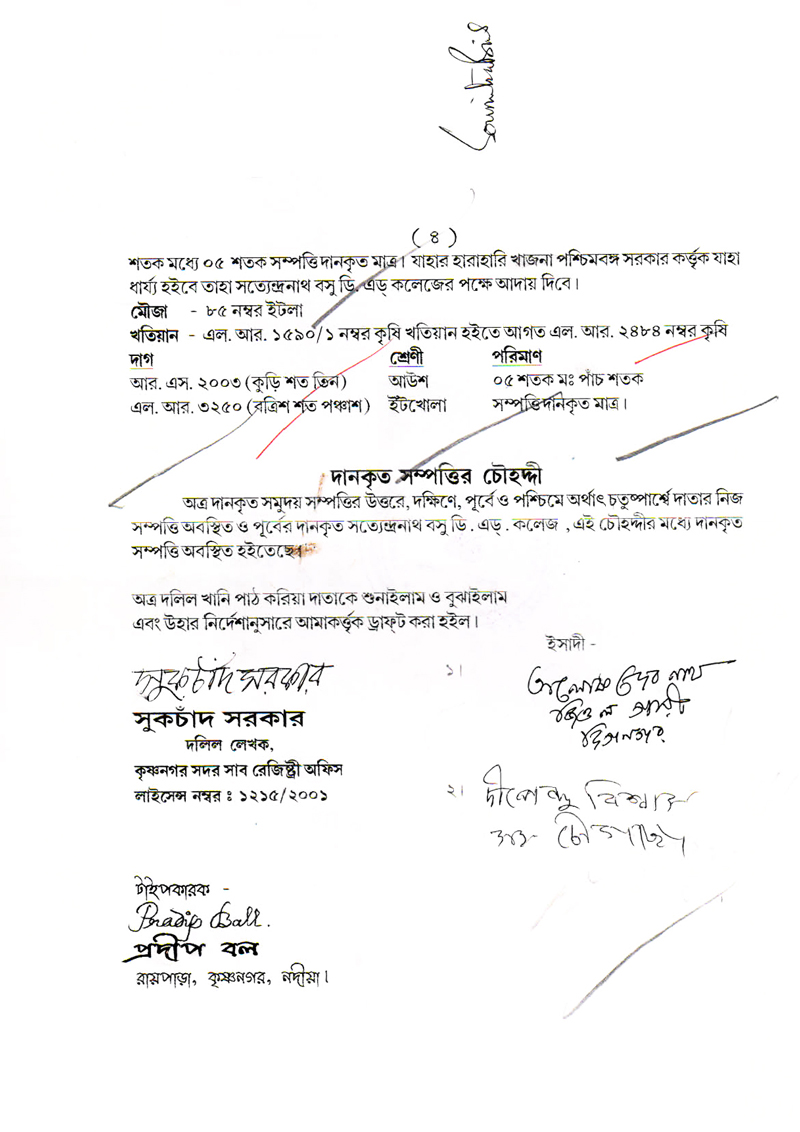 ( ৪ )
শতক মধ্যে ০৫ শতক সম্পত্তি দানকৃত মাত্র। যাহার হারাহারি খাজনা পশ্চিমবঙ্গ সরকার কর্তৃক যাহা
ধার্য্য হইবে তাহা সত্যেন্দ্রনাথ বসু ডি. এড্ কলেজের পক্ষে আদায় দিবে।
মৌজা - ৮৫ নম্বর ইটলা
খতিয়ান - এল. আর. ১৫৯০/১ নম্বর কৃষি খতিয়ান হইতে আগত এল. আর. ২৪৮৪ নম্বর কৃষি
দাগ শ্রেণী পরিমাণ
আর. এস. ২০০৩ (কুড়ি শত তিন) আউশ ০৫ শতক মঃ পাঁচ শতক
এল. আর. ৩২৫০ (বত্রিশ শত পঞ্চাশ) ইটখোলা সম্পত্তি দানকৃত মাত্র।
দানকৃত সম্পত্তির চৌহদ্দী
অত্র দানকৃত সমুদয় সম্পত্তির উত্তরে, দক্ষিণে, পূর্বে ও পশ্চিমে অর্থাৎ চতুষ্পার্শ্বে দাতার নিজ
সম্পত্তি অবস্থিত ও পূর্বের দানকৃত সত্যেন্দ্রনাথ বসু ডি . এড্ . কলেজ , এই চৌহদ্দীর মধ্যে দানকৃত
সম্পত্তি অবস্থিত হইতেছে।
অত্র দলিল খানি পাঠ করিয়া দাতাকে শুনাইলাম ও বুঝাইলাম
এবং উহার নির্দেশানুসারে আমাকর্তৃক ড্রাফ্ট করা হইল।
ইসাদী -
সুকচাঁদ সরকার
১।
সুকচাঁদ সরকার
দলিল লেখক,
কৃষ্ণনগর সদর সাব রেজিষ্ট্রী অফিস
লাইসেন্স নম্বর : ১২১৫/২০০১
২।
টাইপকারক -
Pradip Ball.
প্রদীপ বল
রায়পাড়া, কৃষ্ণনগর, নদীয়া।